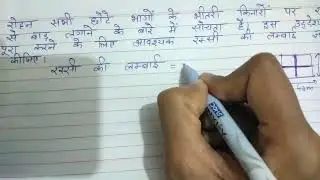 सोहन सभी छोटे भागों के भीतरी किनारों पर रस्सी
से बाड़ लगाने के बारे में सोचता है। इस उद्देश्य
पूरा करने के लिए आवश्यक रस्सी की लम्बाई
कीजिए।
रस्सी की लम्बाई =
4cm